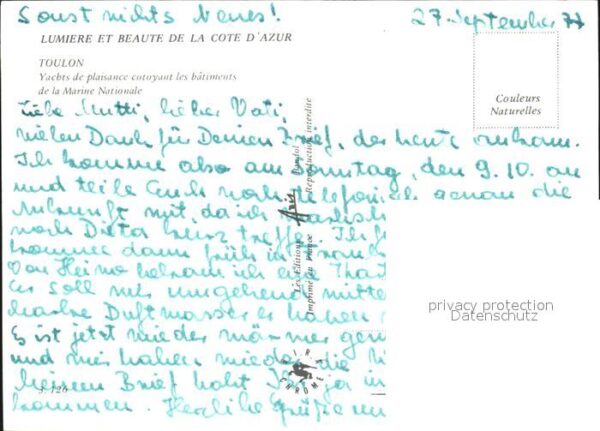 Sonst nichts Neues!
27. September 77
LUMIERE ET BEAUTE DE LA COTE D'AZUR
TOULON
Yachts de plaisance cotoyant les bâtiments
de la Marine Nationale
Couleurs
Naturelles
Liebe Mutti, lieber Vati,
vielen Dank für Deinen Brief, der heute ankam.
Ich komme also am Sonntag, den 9.10. an
und teile Euch noch telefonisch genau die
Ankunft mit, da ich
noch Dieta kurz treffe. Ich
komme dann früh in
Von Heino bekam ich eine
Er soll mir umgehend
Duftwasser er haben
Es ist jetzt wieder wärmer
und wir haben wieder die
meinen Brief habt Ihr ja
kommen. Herzliche Grüße
Les Editions
Imprimé en France
Aris
Bandol
Reproduction interdite
MIR
CHROME
S. 126
privacy protection
Datenschutz